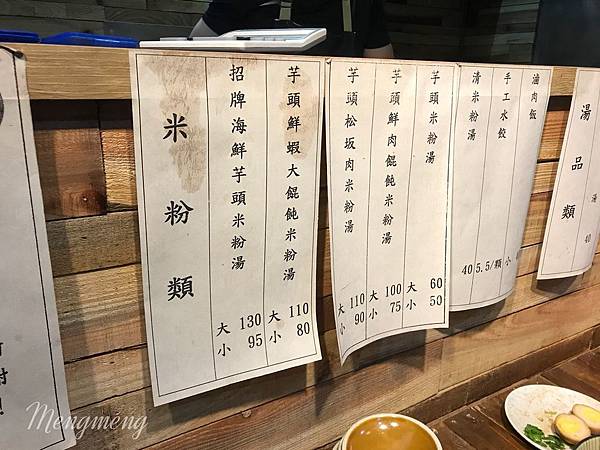 米粉類
招牌海鮮芋頭米粉湯 大 130 小 95
芋頭鮮蝦大餛飩米粉湯 大 110 小 80
芋頭松坂肉米粉湯 大 110 小 90
芋頭鮮肉餛飩米粉湯 大 100 小 75
芋頭米粉湯 大 60 小 50
清米粉湯 40
手工水餃 5.5/顆
滷肉飯 小
湯品類
湯 40
Mengmeng